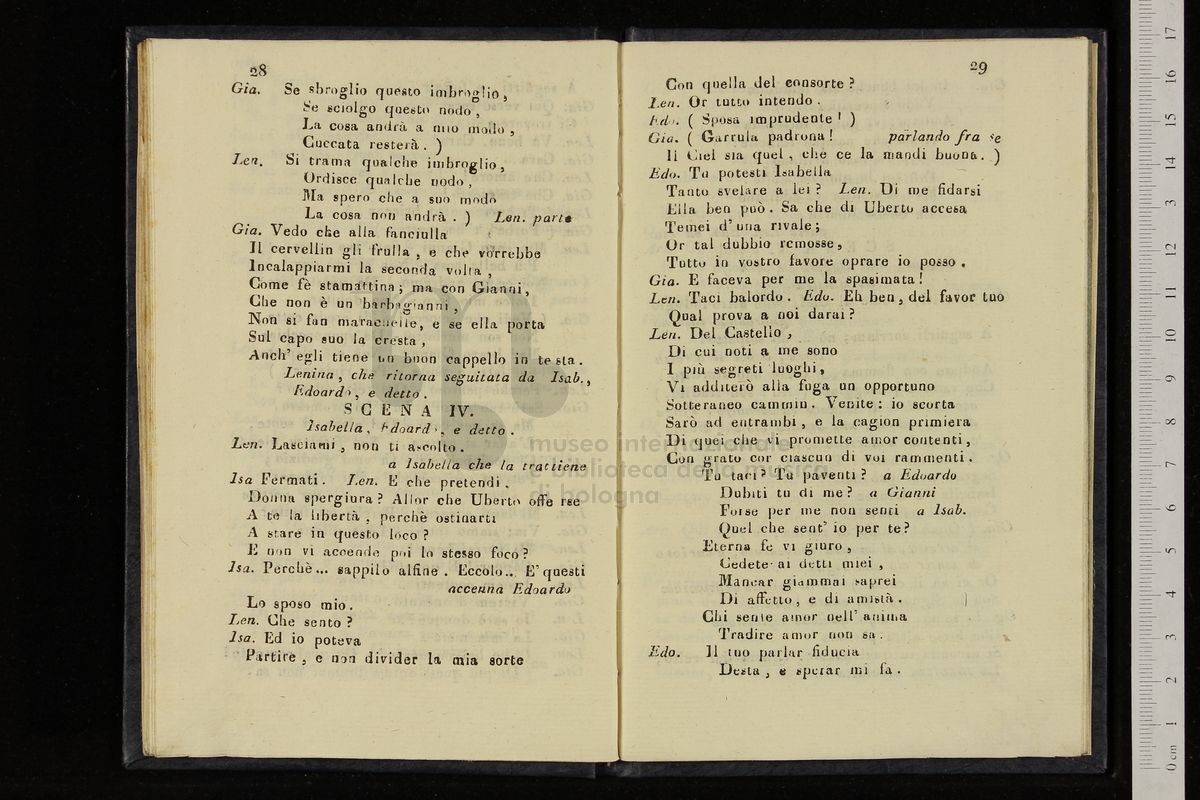 28
Gia. Se sbroglio questo imbroglio,
Se sciolgo questo nodo,
La cosa andrà a mio modo,
Cuccata resterà. )
Len. Si trama qualche imbroglio,
Ordisce qualche nodo,
Ma spero che a suo modo
La cosa non andrà. ) Len. parte
Gia. Vedo che alla fanciulla
Il cervellin gli frulla, e che vorrebbe
Incalappiarmi la seconda volta,
Come fè stamattina; ma con Gianni,
Che non è un barbagianni,
Non si fan maracnelle, e se ella porta
Sul capo suo la cresta,
Anch' egli tiene un buon cappello in testa.
Lenina, che ritorna seguitata da Isab.,
Edoardo, e detto.
SCENA IV.
Isabella, Edoardo, e detto.
Len. Lasciami, non ti ascolto.
a Isabella che la trattiene
Isa Fermati. Len. E che pretendi.
Donna spergiura? Allor che Uberto offerse
A te la libertà, perchè ostinarti
A stare in questo loco?
E non vi accende poi lo stesso foco?
Isa. Perchè... sappilo alfine. Eccolo... E' questi
accenna Edoardo
Lo sposo mio.
Len. Che sento?
Isa. Ed io poteva
Partire, e non divider la mia sorte
29
Con quella del consorte?
Len. Or tutto intendo.
Edo. ( Sposa imprudente! )
Gia. ( Garrula padrona! parlando fra se
Il Ciel sia quel, che ce la mandi buona. )
Edo. Tu potesti Isabella
Tanto svelare a lei? Len. Di me fidarsi
Ella ben può. Sa che di Uberto accesa
Temei d' una rivale;
Or tal dubbio remosse,
Tutto in vostro favore oprare io posso.
Gia. E faceva per me la spasimata!
Len. Taci balordo. Edo. Eh ben, del favor tuo
Qual prova a noi darai?
Len. Del Castello,
Di cui noti a me sono
I più segreti luoghi,
Vi additerò alla fuga un opportuno
Sotteraneo cammin. Venite: io scorta
Sarò ad entrambi, e la cagion primiera
Di quei che vi promette amor contenti,
Con grato cor ciascun di voi rammenti.
Tu taci? Tu paventi? a Edoardo
Dubiti tu di me? a Gianni
Forse per me non senti a Isab.
Quel che sent' io per te?
Eterna fe vi giuro,
Cedete ai detti miei,
Mancar giammai saprei
Di affetto, e di amistà.
Chi sente amor nell' anima
Tradire amor non sa.
Edo. Il tuo parlar fiducia
Desta, e sperar mi fa.
museo internazionale
e biblioteca della musica
di bologna
0 cm 1 2 3 4 5 6 7 8 9 10 11 12 13 14 15 16 17